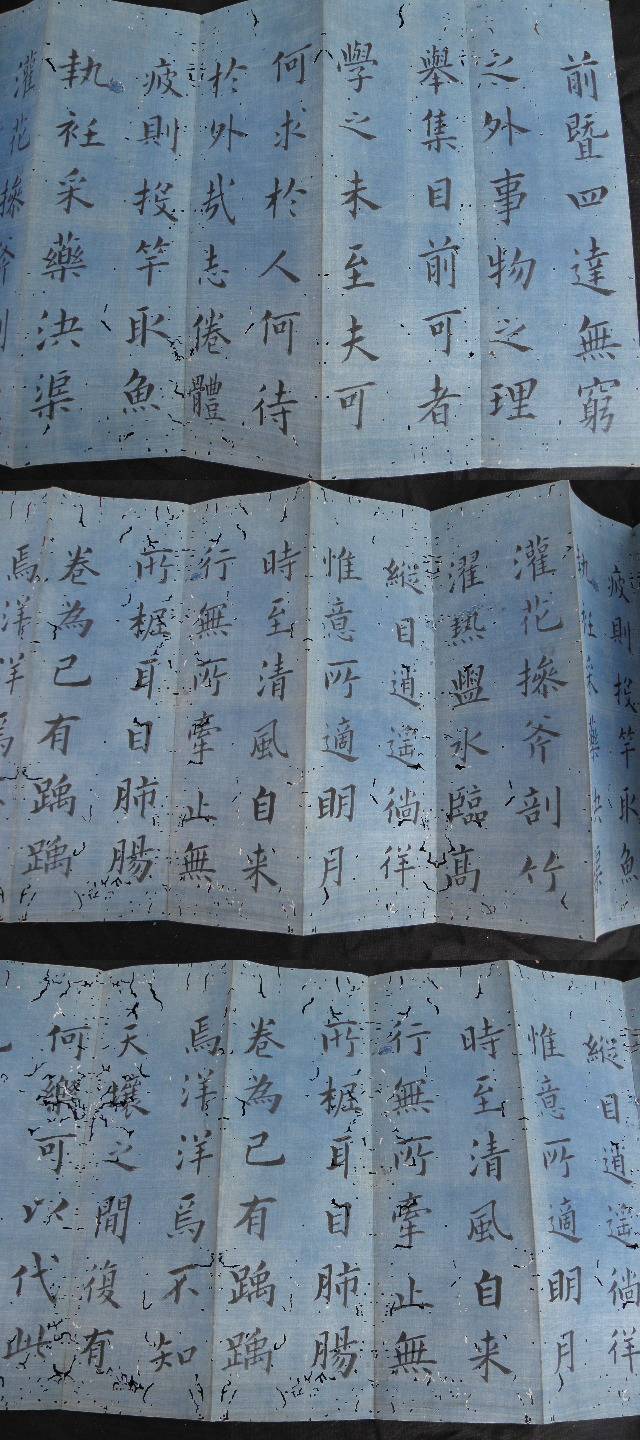 前暨四達無窮
之外事物之理
舉集目前可者
學之未至夫可
何求於人何待
於外哉志倦體
疲則投竿取魚
執衽采藥決渠
灌花操斧剖
疲則投竿取魚
執衽采藥決渠
灌花操斧剖竹
濯熱盥水臨高
縱目逍遙徜徉
惟意所適明月
時至清風自来
行無所牽止無
所柅耳目肺腸
卷為己有踽踽
焉洋洋焉不
縱目逍遙徜徉
惟意所適明月
時至清風自来
行無所牽止無
所柅耳目肺腸
卷為己有踽踽
焉洋洋焉不知
天壤之間復有
何樂可以代此
也